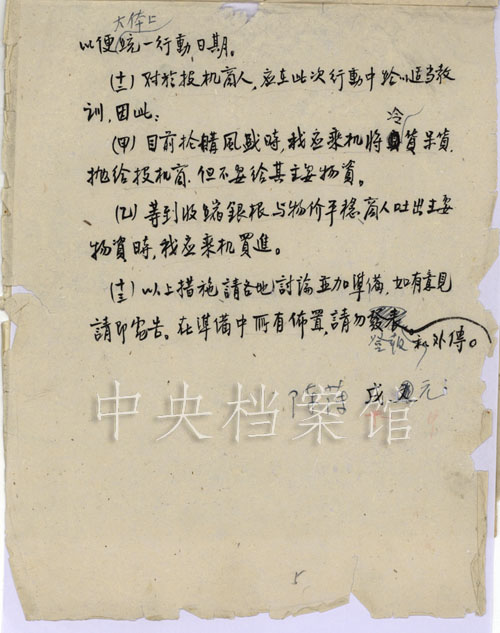 大体上
以便統一行動日期。
(十二)对於投机商人,应在此次行動中給以适当教
訓,因此:
冷
(甲)目前抢購風盛時,我应乘机將貨呆貨
抛給投机商,但不要給其主要物資。
(乙)等到收縮銀根与物价平稳,商人吐出主要
物資時,我应乘机買進。
(十三)以上措施,請各地討論並加準備,如有意見
請即電告。在準備中所有佈置,請勿
登報和外傳。
陳薄 戌元
中央档案馆
5